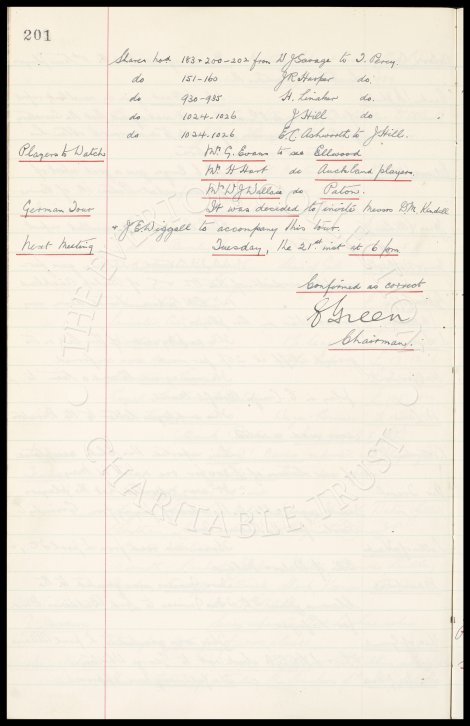 201
Shares Nos 183 + 200-202 from W J Savage to T. Percy
do 151-160 J R Harper do.
do 930-935 H. Linaker do.
do 1024-1026 J Hill do
do 1024-1026 E C. Ashworth to J Hill.
Players to Watch Mr G. Evans to see Ellwood
Mr H Hart do Auckland players.
Mr W J Wallace do Paton.
German Tour It was decided to invite Messrs D M Kendall
+ J. E. Diggell to accompany this tour.
Next Meeting Tuesday, the 21st inst at 6 pm
Confirmed as correct
Green
Chairman.
CHARITABLE TRUST